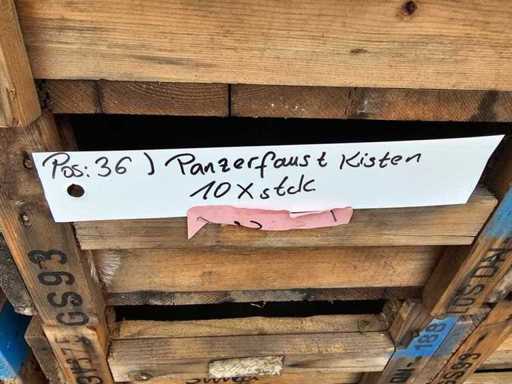 Pos: 36) Panzerfaust Kisten
10 X stck
GS93
188
GS93